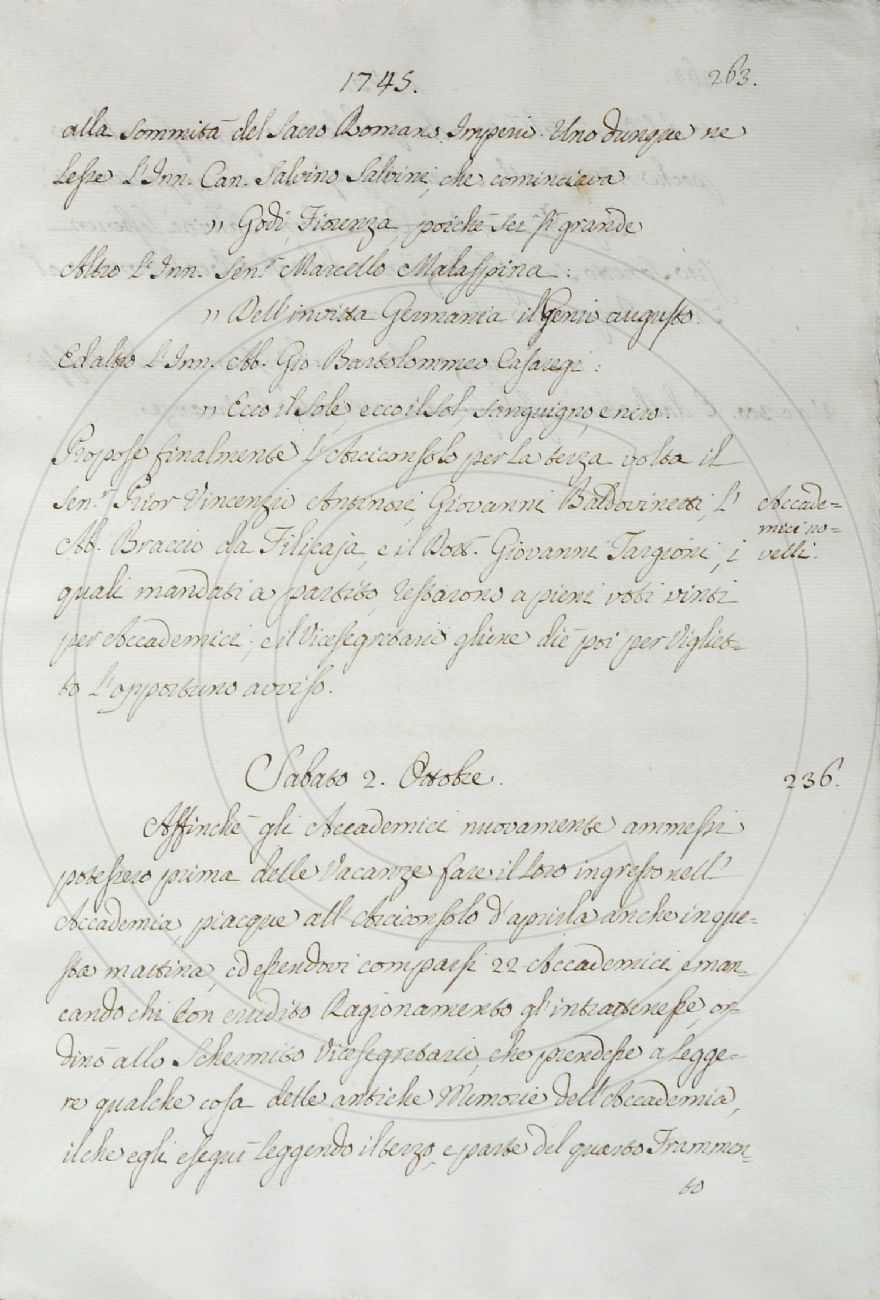 1745.
263.
alla sommità del Sacro Romano Imperio. Uno dunque ne
lesse l'Inn. Can. Salvino Salvini, che cominciava
" Godi, Fiorenza, poichè sei sì grande
Altro l'Inn. Sen.r Marcello Malaspina:
" Dell'invitta Germania il Genio augusto.
Ed altro l'Inn. Ab. Gio. Bartolommeo Casaregi:
" Ecco il Sole, ecco il Sol, sanguigno, e nero.
Propose finalmente l'Arciconsolo per la terza volta il
Sen.r Prior Vincenzio Antinori, Giovanni Baldovinetti, l'
Accade=
mici no=
velli.
Ab. Braccio da Filicaja, e il Dott. Giovanni Targioni, i
quali mandati a partito, restarono a pieni voti vinti
per Accademici; e il Vicesegretario gliene diè poi per vigliet=
to l'opportuno avviso.
Sabato 2. Ottobre.
236.
Affinchè gli Accademici nuovamente ammessi
potessero prima delle Vacanze fare il loro ingresso nell'
Accademia, piacque all'Arciconsolo d'aprirla anche in que=
sta mattina, ed essendovi comparsi 22 Accademici e man=
cando chi con erudito Ragionamento gl'intrattenesse, or=
dinò allo Schermito Vicesegretario, che prendesse a legge=
re qualche cosa delle antiche Memorie dell'Accademia,
il che egli eseguì leggendo il terzo, e parte del quarto Frammen=
to